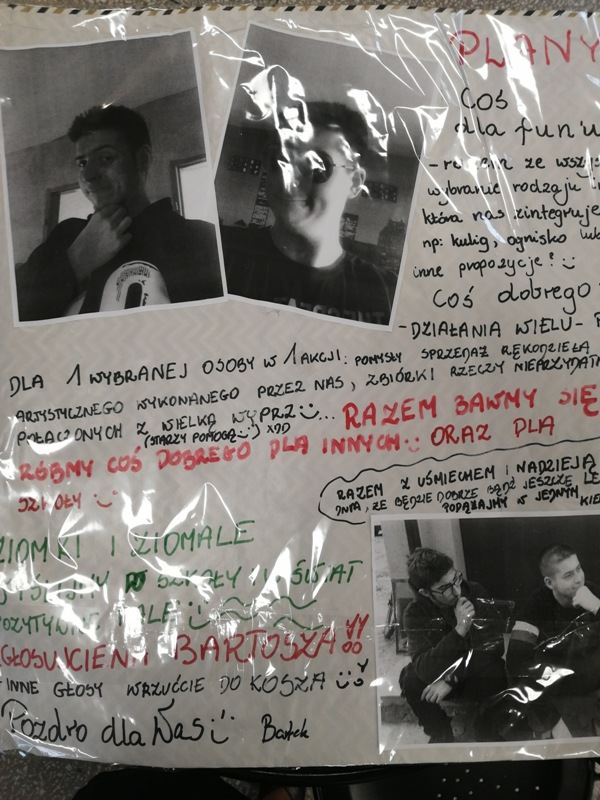 PLANY
Coś
dla fun'u
- razem ze wszys
wybranie rodzaju
która nas zintegruje
np: kulig, ognisko lub
inne propozycje? :)
Coś dobrego
- DZIAŁANIA WIELU -
DLA 1 WYBRANEJ OSOBY W 1 AKCJI: POMYSŁY SPRZEDAŻ RĘKODZIEŁA
ARTYSTYCZNEGO WYKONANEGO PRZEZ NAS, ZBIÓRKI RZECZY NIEPRZYDATN
POŁĄCZONYCH Z WIELKĄ WYPRZ :)...
(STARZY POMOGĄ :)) X9D
RAZEM BAWMY SIĘ
RÓBMY COŚ DOBREGO DLA INNYCH :) ORAZ DLA
SZKOŁY :)
RAZEM Z UŚMIECHEM I NADZIEJĄ
DNIA, ŻE BĘDZIE DOBRZE BĄDŹ JESZCZE LE
PODĄŻAJMY W JEDNYM KIE
ZIOMKI I ZIOMALE
DO SZKOŁY I W ŚWIAT
POZYTYWNE FALE :)
GŁOSUJCIE NA BARTOSZA!!
INNE GŁOSY WRZUĆCIE DO KOSZA :)
Pozdro dla Was :) Bartek